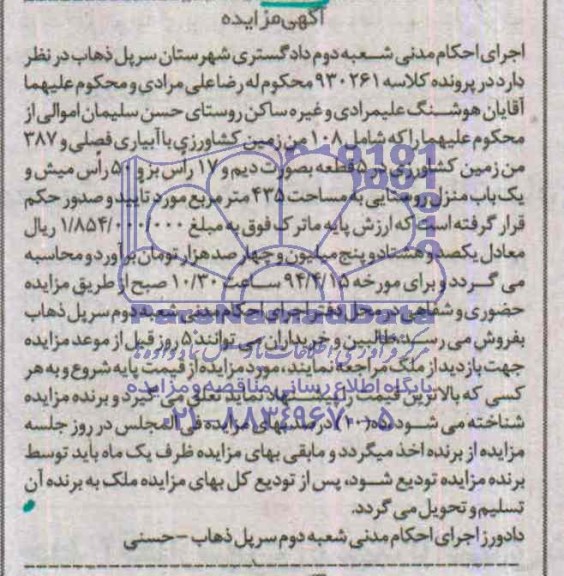 آگهی مزایده
اجرای احکام مدنی شعبه دوم دادگستری شهرستان سرپل ذهاب در نظر
دارد در پرونده کلاسه ۹۳۰۲۶۱ محکوم له رضاعلی مرادی و محکوم علیهما
آقایان هوشنگ علیمرادی و غیره ساکن روستای حسن سلیمان اموالی از
محکوم علیهما را که شامل ۱۰۸ من زمین کشاورزی با آبیاری فصلی و ۳۸۷
من زمین کشاورزی در ۵ قطعه بصورت دیم و ۱۷ رأس بز و ۵۰ رأس میش و
یک باب منزل روستایی به مساحت ۴۳۵ متر مربع مورد تایید و صدور حکم
قرار گرفته است که ارزش پایه ماترک فوق به مبلغ ۱/۸۵۴/۰۰۰/۰۰۰ ریال
معادل یکصد و هشتاد و پنج میلیون و چهار صد هزار تومان برآورد و محاسبه
می گردد و برای مورخه ۹۴/۴/۱۵ ساعت ۱۰/۳۰ صبح از طریق مزایده
حضوری و شفاهی در محل دفتر اجرای احکام مدنی شعبه دوم سرپل ذهاب
بفروش می رسد، طالبین و خریداران می توانند ۵ روز قبل از موعد مزایده
جهت بازدید از ملک مراجعه نمایند، مورد مزایده از قیمت پایه شروع و به هر
کسی که بالاترین قیمت را پیشنهاد نماید تعلق می گیرد و برنده مزایده
شناخته می شود. ده (۱۰) درصد بهای مزایده فی المجلس در روز جلسه
مزایده از برنده اخذ میگردد و مابقی بهای مزایده ظرف یک ماه باید توسط
برنده مزایده تودیع شود، پس از تودیع کل بهای مزایده ملک به برنده آن
تسلیم و تحویل می گردد.
دادورز اجرای احکام مدنی شعبه دوم سرپل ذهاب - حسنی
ParsNamadData
پایگاه اطلاع رسانی مناقصه و مزایده
۰۲۱-۸۸۳۴۹۶۷۰-۵